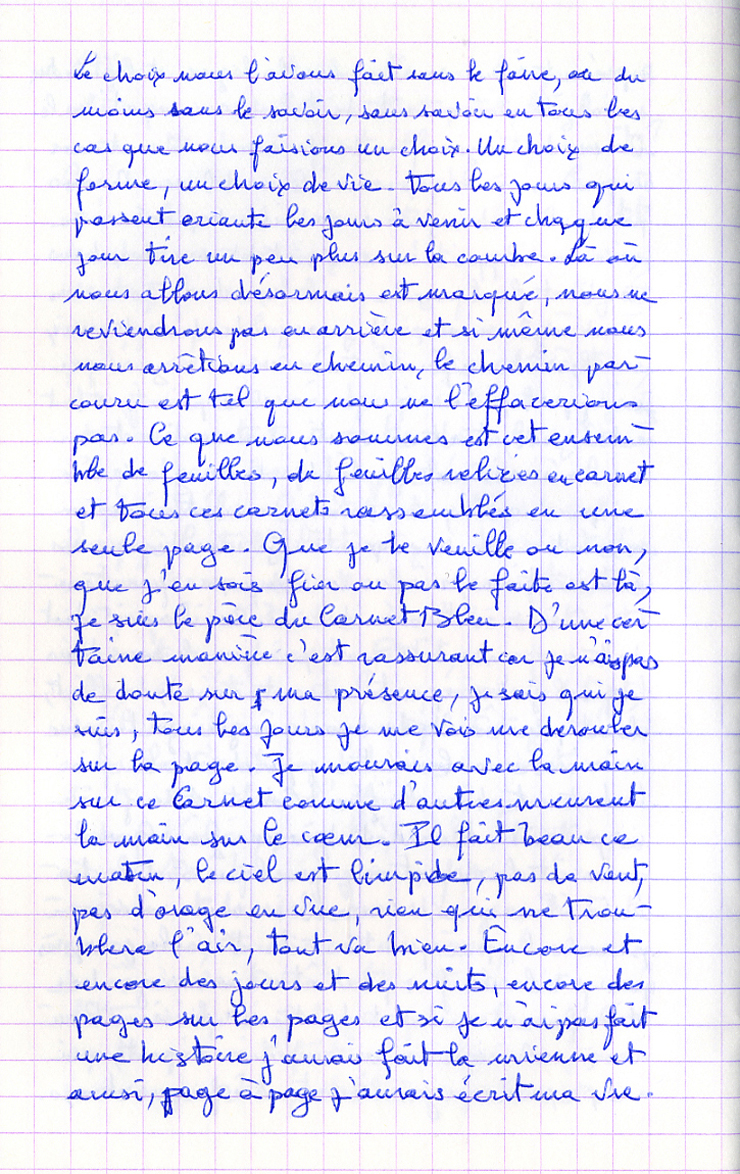 Le choix nous l'avons fait sans le faire, ou du
moins sans le savoir, sans savoir en tous les
cas que nous faisions un choix. Un choix de
forme, un choix de vie. Tous les jours qui
passent oriente les jours à venir et chaque
jour tire un peu plus sur la courbe. Là où
nous allons désormais est marqué, nous ne
reviendrons pas en arrière et si même nous
nous arrêtions en chemin, le chemin par-
couru est tel que nous ne l'effacerions
pas. Ce que nous sommes est cet ensem-
ble de feuilles, de feuilles reliées en carnet
et tous ces carnets rassemblés en une
seule page. Que je le veuille ou non,
que j'en sois fier ou pas le faite est là,
je suis le père du Carnet Bleu. D'une cer-
taine manière c'est rassurant car je n'ai pas
de doute sur ma présence, je sais qui je
suis, tous les jours je me vois me dérouler
sur la page. Je mourais avec la main
sur ce Carnet comme d'autres meurent
la main sur le cœur. Il fait beau ce
matin, le ciel est limpide, pas de vent,
pas d'orage en vue, rien qui ne trou-
blera l'air, tout va bien. Encore et
encore des jours et des nuits, encore des
pages sur les pages et si je n'ai pas fait
une histoire j'aurai fait la mienne et
ainsi, page à page j'aurais écrit ma vie.